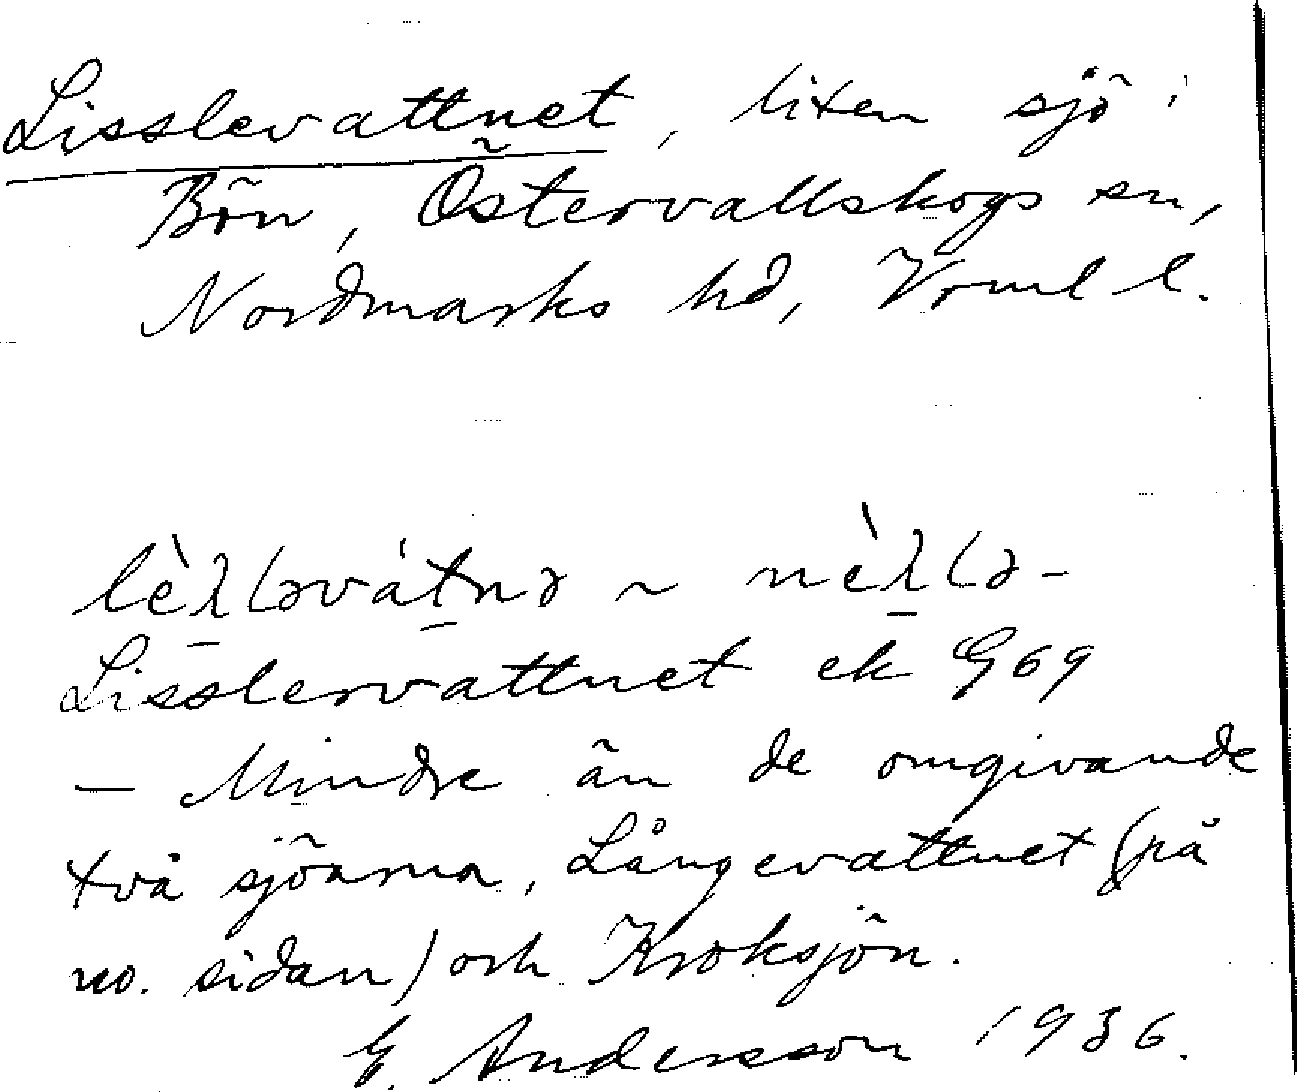 Lisslevattnet, liten sjö i
Bön, Östervallskogs sn,
Nordmarks hd, Vrml l.
lèλ(əvátnə ~ nèλ(ə-
Lisslervattnet ek G69
– Mindre än de omgivande
två sjöarna, Långevattnet (på
no. sidan) och Kroksjön.
G. Andersson 1936.